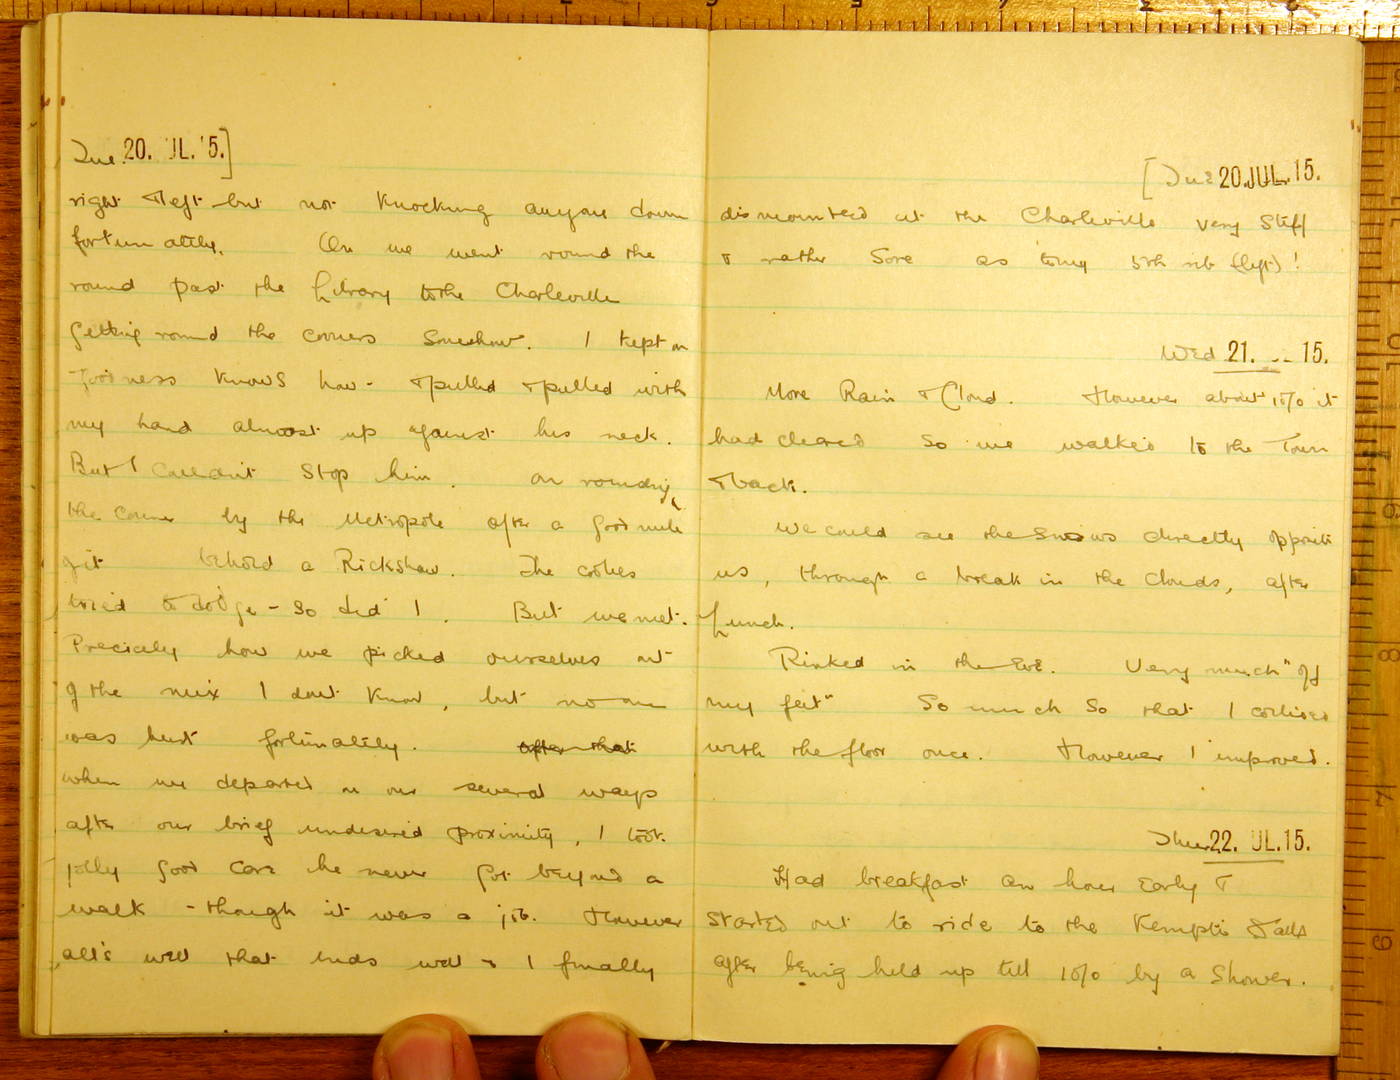 Tue. 20. JUL. 15.]
right & left but not knocking anyone down
fortunately. On we went round the
round past the Library to the Charleville
getting round the corners somehow. I kept on
- goodness knows how - & pulled & pulled with
my hand almost up against his neck.
But I couldn't stop him. On rounding
the corner by the Metropole after a good mile
behold a Rickshaw. The coolies
tried to dodge - so did I. But we met.
Precisely how we picked ourselves out
of the mix I dont know, but no one
was hurt fortunately. after that
when we departed on our several ways
after our brief undesired proximity, I took
jolly good care he never got beyond a
walk - though it was a job. However
all's well that ends well & I finally
[Tue 20 JUL 15.
dismounted at the Charleville very stiff
& rather sore as to my 5th rib (left)!
Wed 21. 15.
More Rain & Cloud. However about it
had cleared so we walked to the Town
& back.
We could see the snows directly opposite
us, through a break in the clouds, after
Lunch.
Rinked in the Eve. Very much "off
my feet" So much so that I collided
with the floor once. However I improved.
Thur. 22. JUL. 15.
Had breakfast an hour early &
started out to ride to the Kemptis Falls
after being held up till 10/0 by a shower.